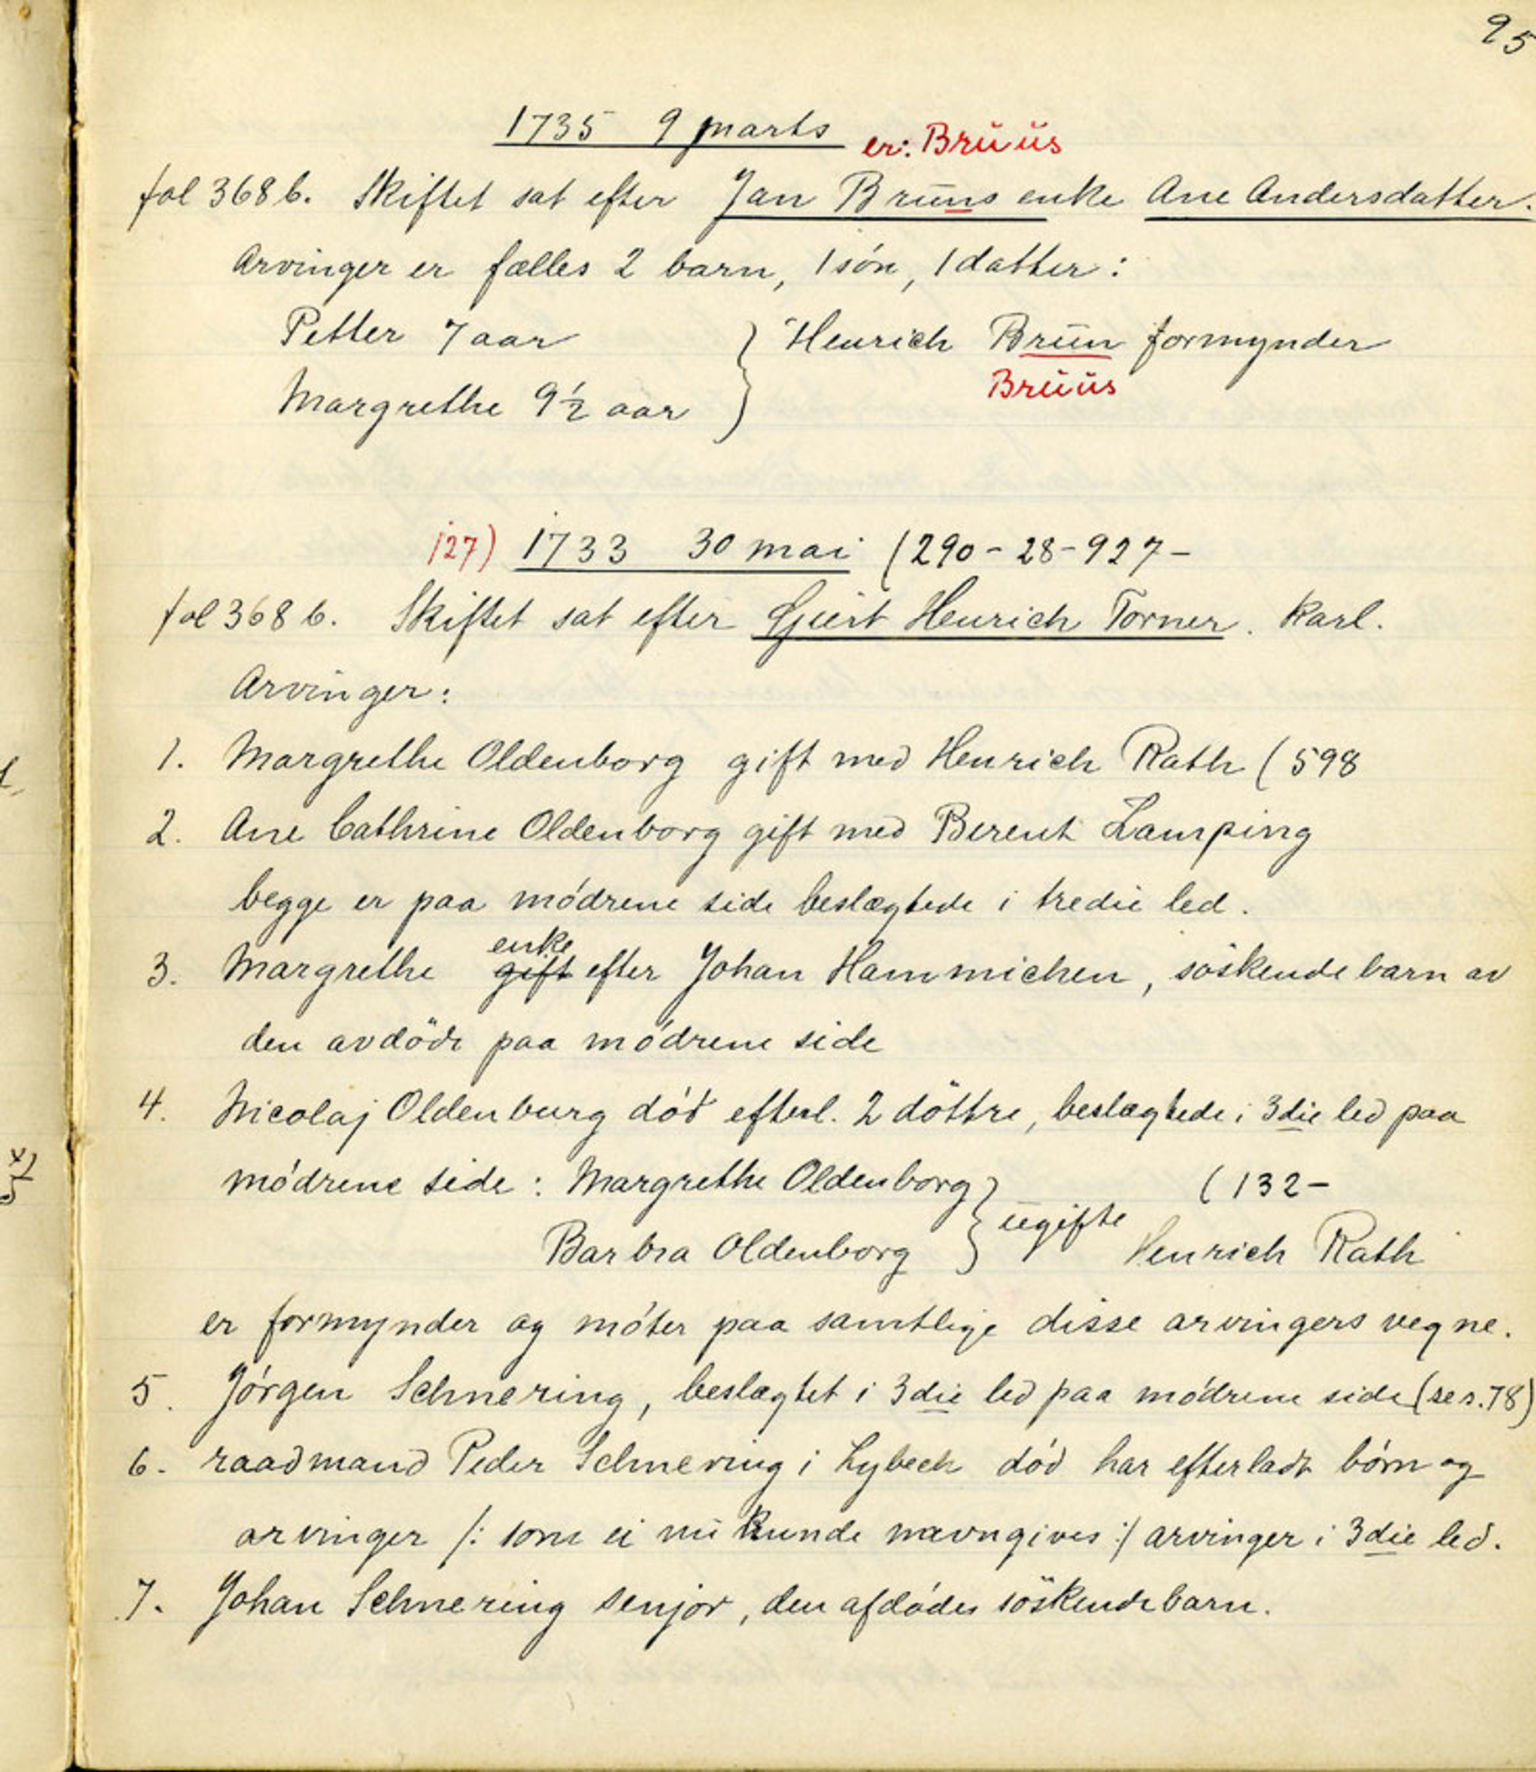 95
1735 9 marts er: Brüüs
fol 368 b. Skiftet sat efter Jan Brūns enke Ane Andersdatter.
Arvinger er fælles 2 barn, 1 són, 1 datter:
Petter 7 aar } Henrich Brün formynder
Margrethe 9½ aar Brüüs
127) 1733 30 mai (290-28-927-
fol 368 b. Skiftet sat efter Gjert Henrich Torner. Karl.
Arvinger:
1. Margrethe Oldenborg gift med Henrich Rath (598
2. Ane Cathrine Oldenborg gift med Berent Lamping
begge er paa módrene side beslægtede i tredie led.
3. Margrethe gift enke efter Johan Hammichen, söskendebarn av
den avdöde paa módrene side
4. Nicolaj Oldenburg död efterl. 2 döttre, beslægtede i 3die led paa
módrene side: Margrethe Oldenborg } (132-
Barbra Oldenborg ugifte Henrich Rath
er formynder og móter paa samtlige disse arvingers vegne.
5. Jórgen Schnering, beslægtet i 3die led paa módrene side (se s. 78)
6. raadmand Peder Schnering i Lybeck död har efterladt börn og
arvinger /: som ei nu kunde navngives :/ arvinger i 3die led.
7. Johan Schnering senjor, den afdódes söskendebarn.